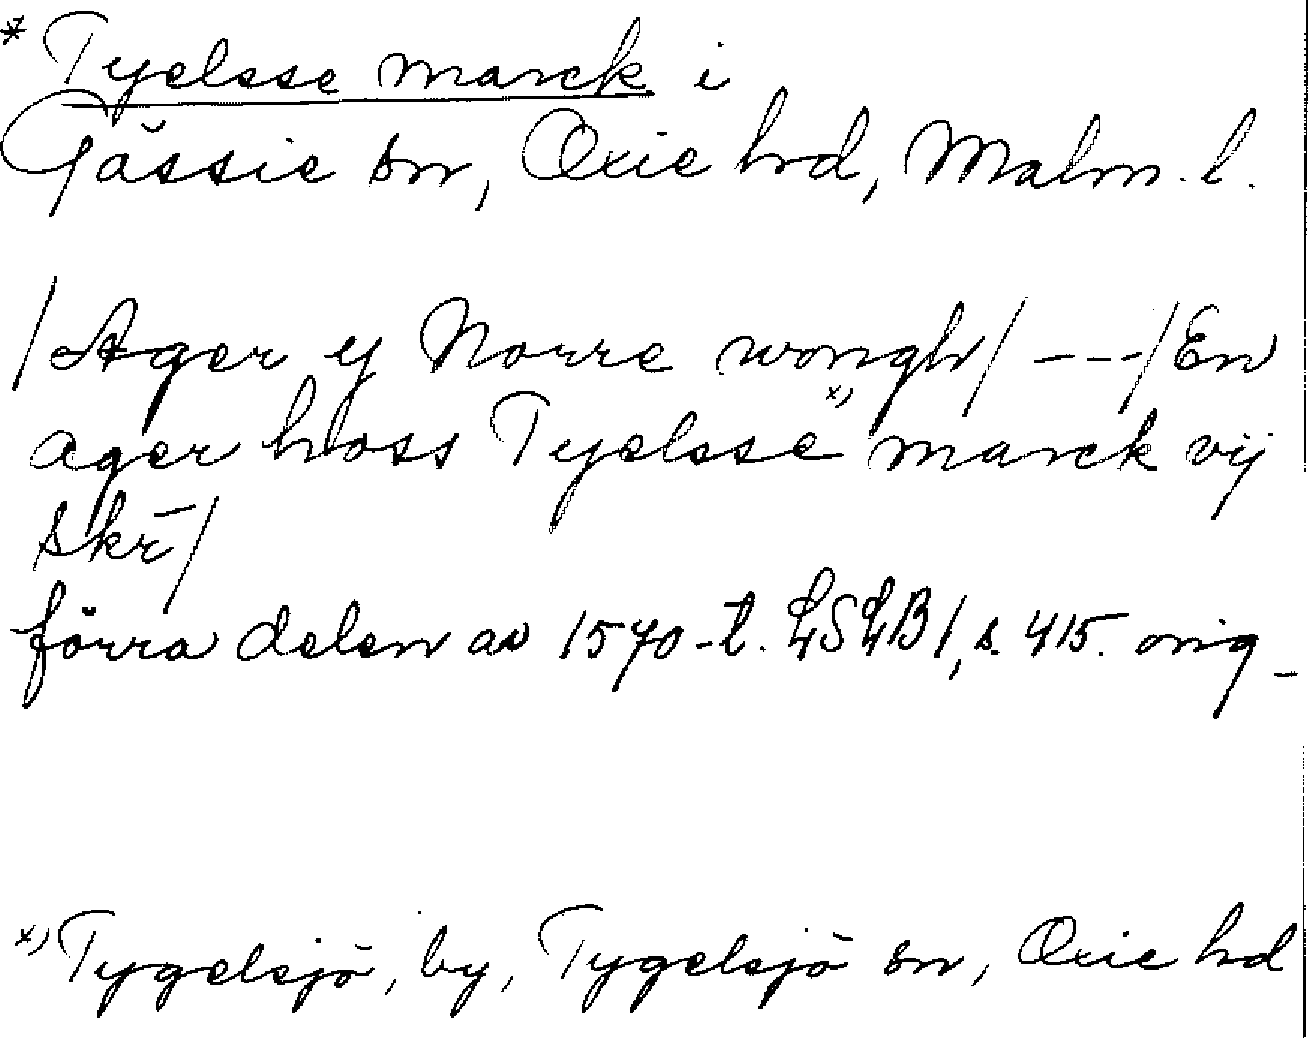 * Tyelsse marck i
Gässie sn, Oxie hd, Malm. l.
/Ager y Norre wongh/ ---/En
ager hoss Tyelsse x) marck vij
skr̄/
förra delen av 1570-t. LSLB 1, s. 415. orig_
x) Tygelsjö, by, Tygelsjö sn, Oxie hd